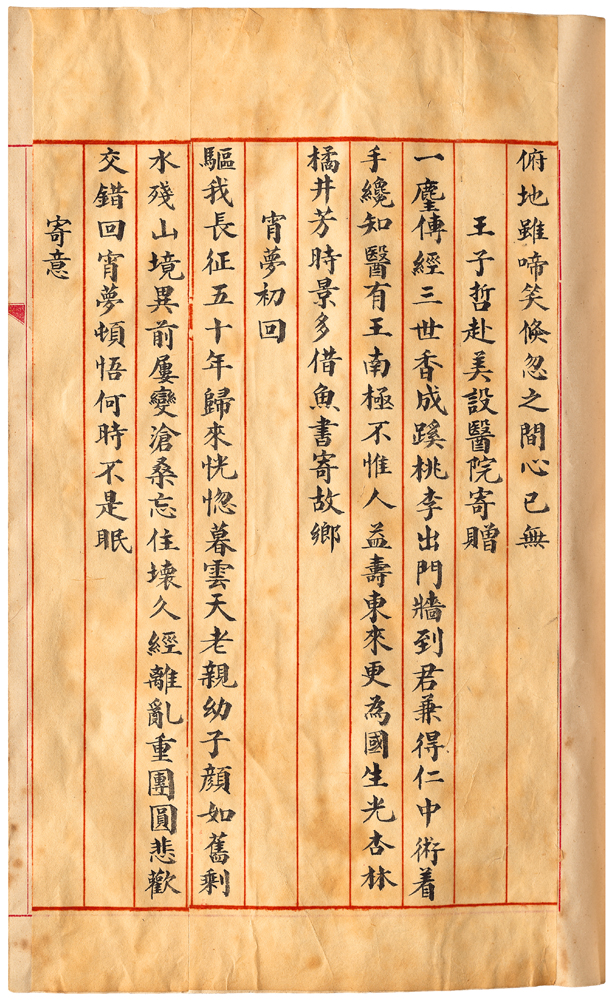 俯地雖啼笑倏忽之間心已無
王子哲赴美設醫院寄贈
一廛傳經三世香成蹊桃李出門牆到君兼得仁中術着
手纔知醫有王南極不惟人益壽東來更為國生光杏林
橘井芳時景多借魚書寄故鄉
宵夢初回
驅我長征五十年歸來恍惚暮雲天老親幼子顏如舊剩
水殘山境異前屢變滄桑忘住壞久經離亂重團圓悲歡
交錯回宵夢頓悟何時不是眠
寄意